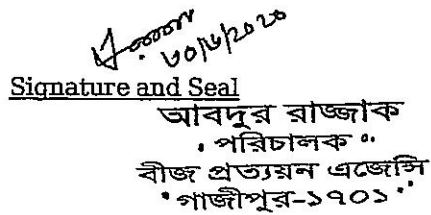 ৩০/৬/২০২০
Signature and Seal
আবদুর রাজ্জাক
পরিচালক
বীজ প্রত্যয়ন এজেন্সি
গাজীপুর-১৭০১